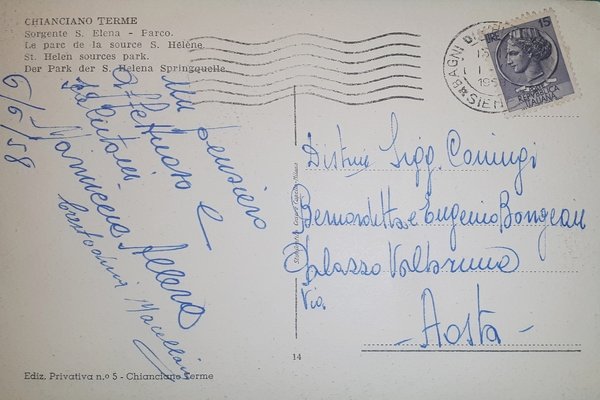 CHIANCIANO TERME
Sorgente S. Elena - Parco.
Le parc de la source S. Hélène.
St. Helen sources park.
Der Park der S. Helena Springquelle.
Un pensiero
affettuoso e
saluti
6/6/58
BAGNI DI
SIEN
LIRE 15
REPVBBLICA
ITALIANA
Distinti Sigg. Coniugi
Bernardetta e Eugenio Bongean
Palazzo Valbruna
Via
- Aosta -
14
Ediz. Privativa n.º 5 - Chianciano Terme